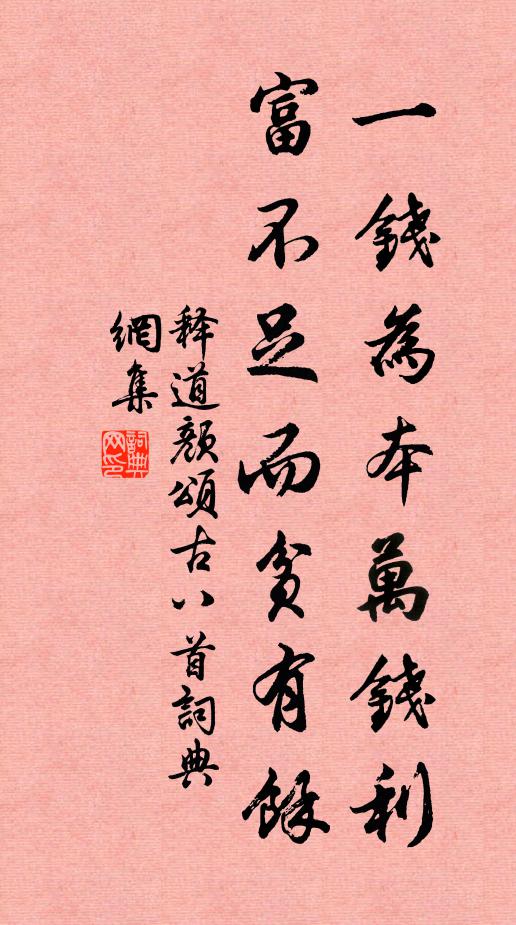 一錢為本萬錢利
富不足而貧有餘
释道顏頌古八首詞典
網集
詞典
网印